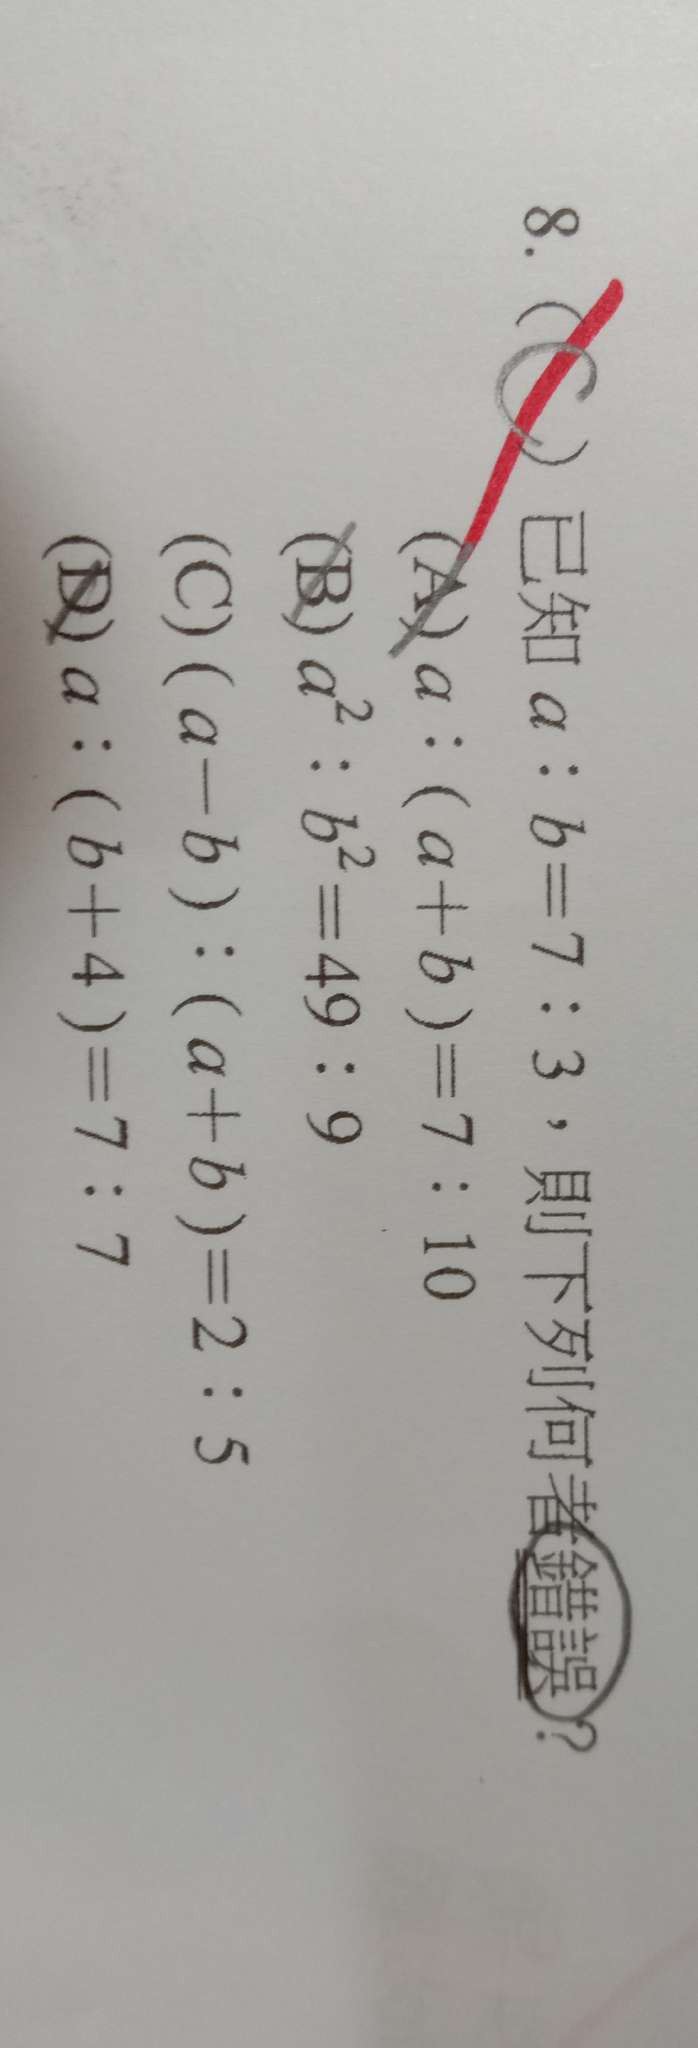 8. ( C ) 已知 a：b=7：3，則下列何者錯誤？
(A) a：( a+b )=7：10
(B) a²：b²=49：9
(C) ( a-b )：( a+b )=2：5
(D) a：( b+4 )=7：7